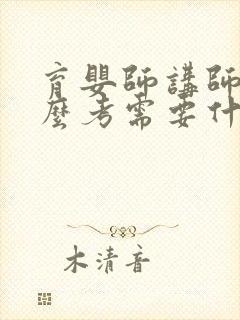 育嬰師講師
麼考需要什
木清音